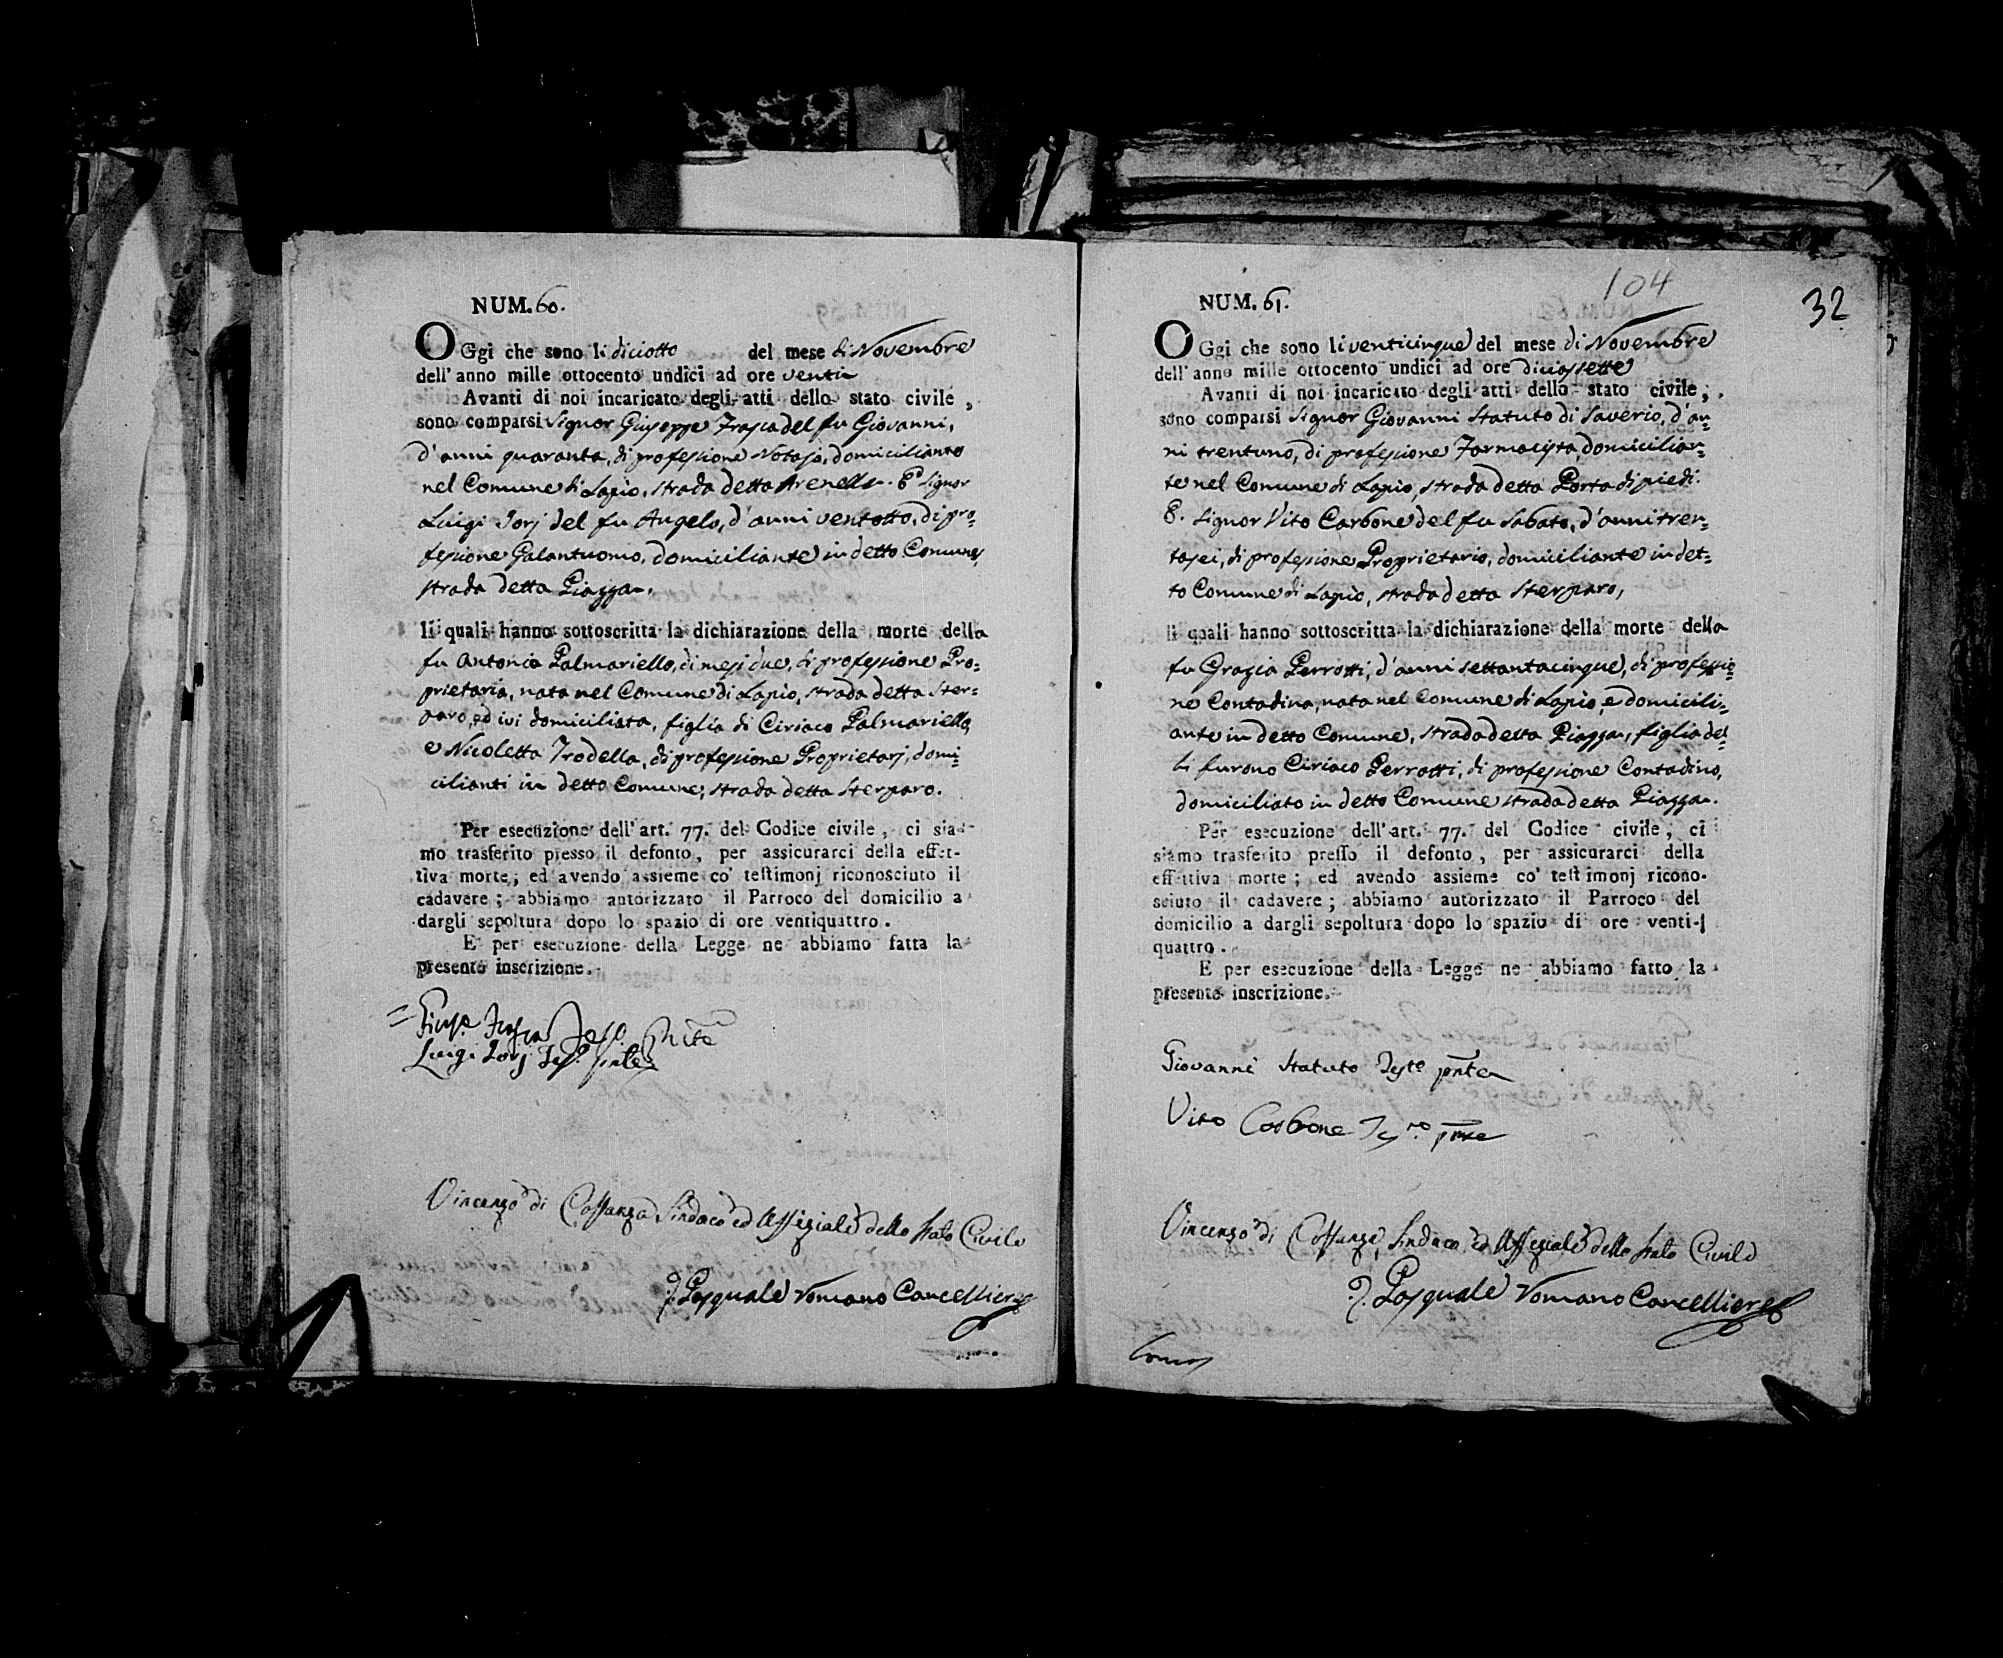 NUM. 60.
OGgi che sono li diciotto del mese di Novembre
dell'anno mille ottocento undici ad ore venti
Avanti di noi incaricato degli atti dello stato civile,
sono comparsi Signor Giuseppe Frasca del fu Giovanni,
d'anni quaranta, di professione Notajo, domiciliante
nel Comune di Lapio, strada detta Arenella. E Signor
Luigi Iorj del fu Angelo, d'anni ventotto, di pro=
fessione Galantuomo, domiciliante in detto Comune,
strada detta Piazza,
li quali hanno sottoscritta la dichiarazione della morte della
fu Antonia Palmariello, di mesi due, di professione Pro=
prietaria, nata nel Comune di Lapio, strada detta Ster=
paro, ed ivi domiciliata, figlia di Ciriaco Palmariello,
e Nicoletta Trodella, di professione Proprietarj, domi=
cilianti in detto Comune, strada detta Sterparo.
Per esecuzione dell'art. 77. del Codice civile, ci sia-
mo trasferito presso il defonto, per assicurarci della effet-
tiva morte; ed avendo assieme co' testimonj riconosciuto il
cadavere; abbiamo autorizzato il Parroco del domicilio a
dargli sepoltura dopo lo spazio di ore ventiquattro.
E per esecuzione della Legge ne abbiamo fatta la
presente inscrizione.
Luigi Iorj
Vincenzo di Costanzo Sindaco ed Uffiziale dello Stato Civile
Pasquale Romano Cancelliere
104
32
NUM. 61.
OGgi che sono li venticinque del mese di Novembre
dell'anno mille ottocento undici ad ore diciassette
Avanti di noi incaricato degli atti dello stato civile,
sono comparsi Signor Giovanni Statuto di Saverio, d'an=
ni trentuno, di professione Farmacista, domicilian=
te nel Comune di Lapio, strada detta Porta di piedi.
E. Signor Vito Carbone del fu Sabato, d'anni tren=
tasei, di professione Proprietario, domiciliante in det=
to Comune di Lapio, strada detta Sterparo,
li quali hanno sottoscritta la dichiarazione della morte della
fu Grazia Perrotti, d'anni settantacinque, di professio=
ne Contadina, nata nel Comune di Lapio, e domicili=
ante in detto Comune, strada detta Piazza, figlia del=
li furono Ciriaco Perrotti, di professione Contadino,
domiciliato in detto Comune strada detta Piazza.
Per esecuzione dell'art. 77. del Codice civile, ci
siamo trasferito presso il defonto, per assicurarci della
effettiva morte; ed avendo assieme co' testimonj ricono-
sciuto il cadavere; abbiamo autorizzato il Parroco del
domicilio a dargli sepoltura dopo lo spazio di ore venti-
quattro.
E per esecuzione della Legge ne abbiamo fatto la
presente inscrizione.
Giovanni Statuto Testo pnte
Vito Carbone
Vincenzo di Costanzo Sindaco ed Uffiziale dello Stato Civile
Pasquale Romano Cancelliere